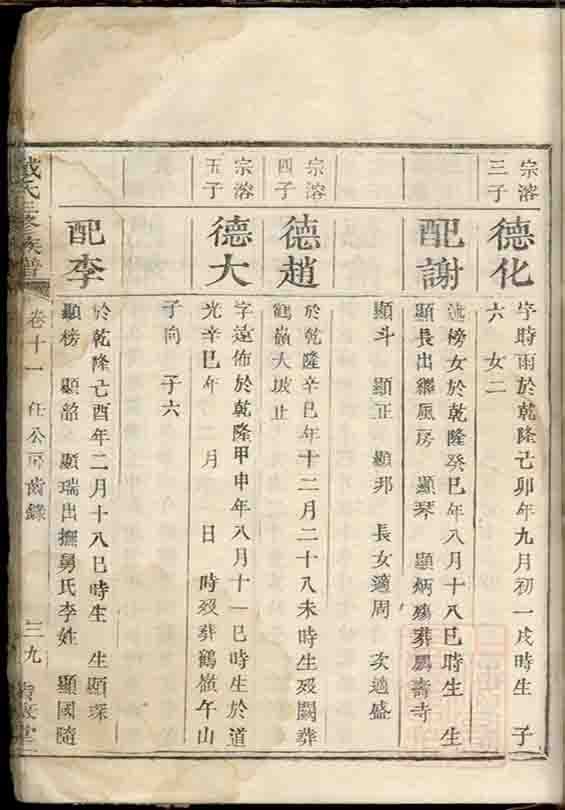 宗溶
三子
德化
字時雨於乾隆己卯年九月初一戌時生 子
六 女二
配謝
述榜女於乾隆癸巳年八月十八巳時生 生
顯長出繼風房 顯琴 顯炳殤葬鵬壽寺
顯斗 顯正 顯邦 長女適周 次適盛
宗溶
四子
德趙
於乾隆辛巳年十二月二十八未時生歿闕葬
鶴嶺大坡止
宗溶
五子
德大
字遠佈於乾隆甲申年八月十一巳時生於道
光辛巳年 月 日 時歿葬鶴嶺午山
子向 子六
配李
於乾隆己酉年二月十八巳時生 生顯琛
顯榜 顯韶 顯瑞出撫舅氏李姓 顯國隨
氏三修族譜
卷十一 任公房齒錄
三九
堂